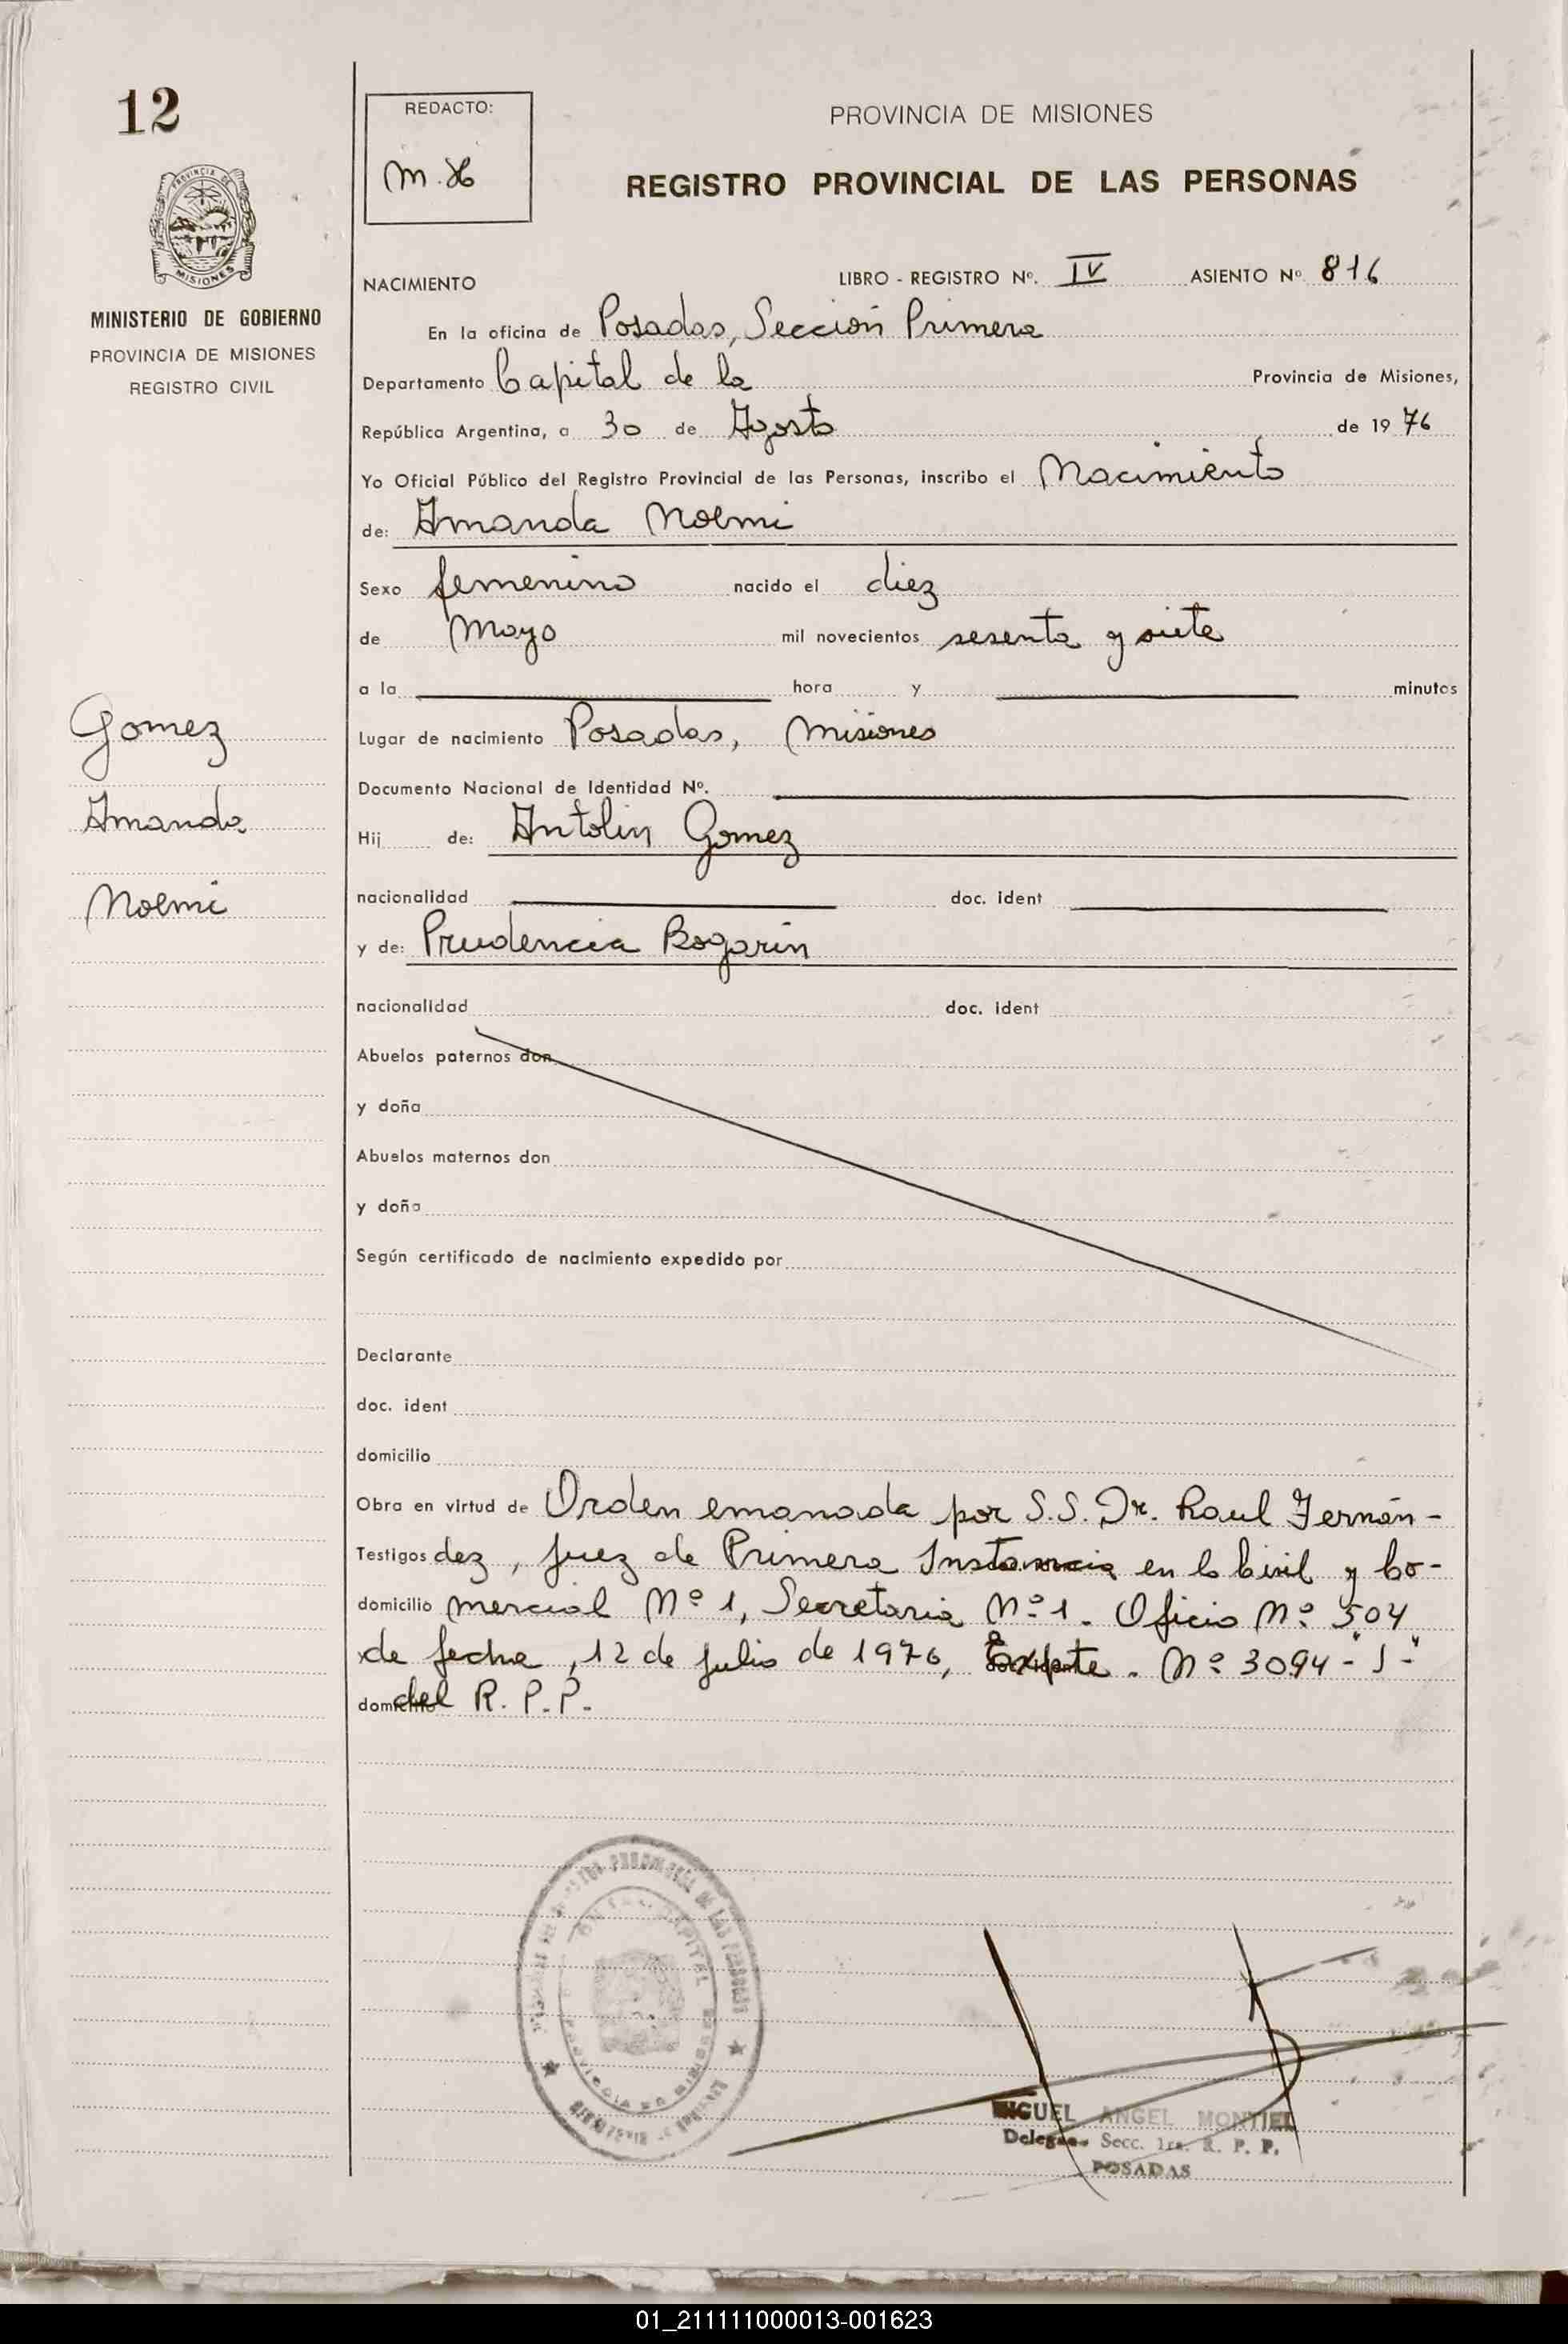 12
REDACTO:
M.H
PROVINCIA DE MISIONES
REGISTRO PROVINCIAL DE LAS PERSONAS
MISIONES
MINISTERIO DE GOBIERNO
PROVINCIA DE MISIONES
REGISTRO CIVIL
NACIMIENTO LIBRO - REGISTRO Nº. IV ASIENTO Nº 816
En la oficina de Posadas, Sección Primera
Departamento Capital de la Provincia de Misiones,
República Argentina, a 30 de Agosto de 1976
Yo Oficial Público del Registro Provincial de las Personas, inscribo el Nacimiento
de: Amanda Noemi
Sexo femenino nacido el diez
de Mayo mil novecientos sesenta y siete
a la hora y minutos
Lugar de nacimiento Posadas, Misiones
Documento Nacional de Identidad Nº.
Hij de: Antolin Gomez
nacionalidad doc. ident
y de: Prudencia Bogarin
nacionalidad doc. ident
Abuelos paternos don
y doña
Abuelos maternos don
y doña
Según certificado de nacimiento expedido por
Declarante
doc. ident
domicilio
Obra en virtud de Orden emanada por S.S. Dr. Raul Fernán-
Testigos dez, Juez de Primera Instancia en lo Civil y Co-
domicilio mercial Nº 1, Secretaria Nº 1. Oficio Nº 504
de fecha, 12 de Julio de 1976, Expte. Nº 3094-"J-"
del R. P. P.-
Gomez
Amanda
Noemi
MIGUEL ANGEL MONTIEL
Delegado Secc. 1ra. R. P. P.
POSADAS
01_211111000013-001623